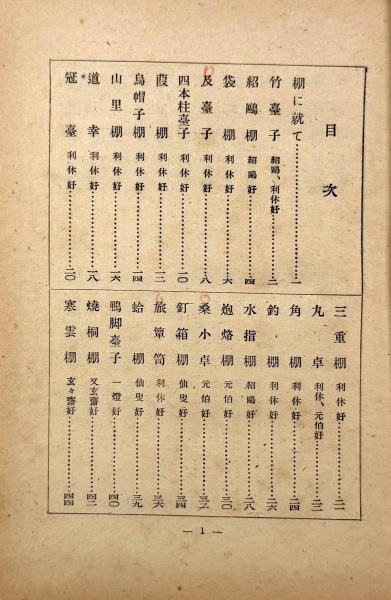 目次
棚に就て……一
竹臺子 紹鷗、利休好……二
紹鷗棚 紹鷗好……四
袋棚 利休好……六
及臺子 利休好……八
四本柱臺子 利休好……一〇
葭棚 利休好……一二
烏帽子棚 利休好……一四
山里棚 利休好……一六
道幸 利休好……一八
冠臺 利休好……二〇
三重棚 利休好……二一
丸卓 利休、元伯好……二二
角棚 利休好……二四
釣棚 利休好……二六
水指棚 紹鷗好……二八
炮烙棚 元伯好……三〇
桑小卓 元伯好……三二
釘箱棚 仙叟好……三四
旅簞笥 利休好……三六
蛤棚 仙叟好……三九
鴨脚臺子 一燈好……四〇
燒桐棚 又玄齋好……四二
寒雲棚 玄々齋好……四四
— 1 —